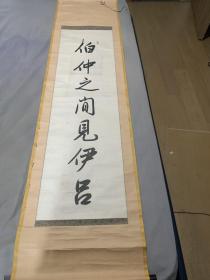 伯仲之间見伊吕